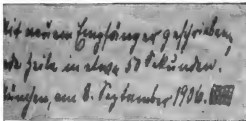 Mit neuem Empfänger geschrieben,
die Zeile in etwa 57 Sekunden.
München, am 8. September 1906.